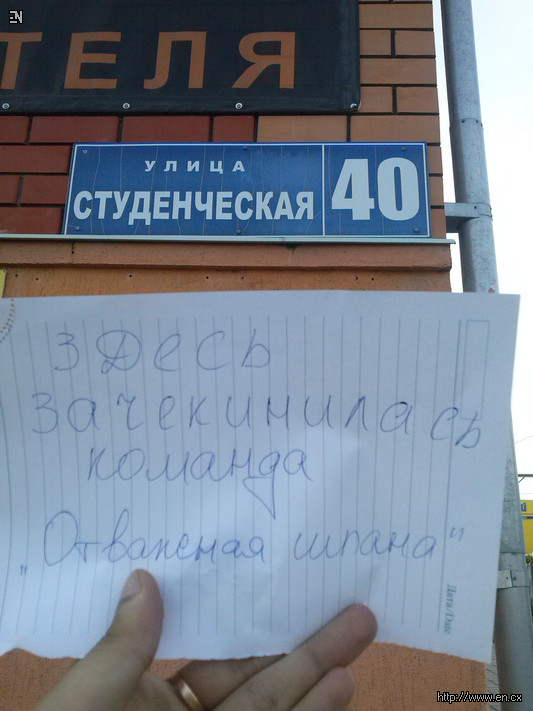 EN
ТЕЛЯ
УЛИЦА
СТУДЕНЧЕСКАЯ 40
здесь
зачекинилась
команда
„Отважная шпана"
Дата/Date
http://www.en.cx